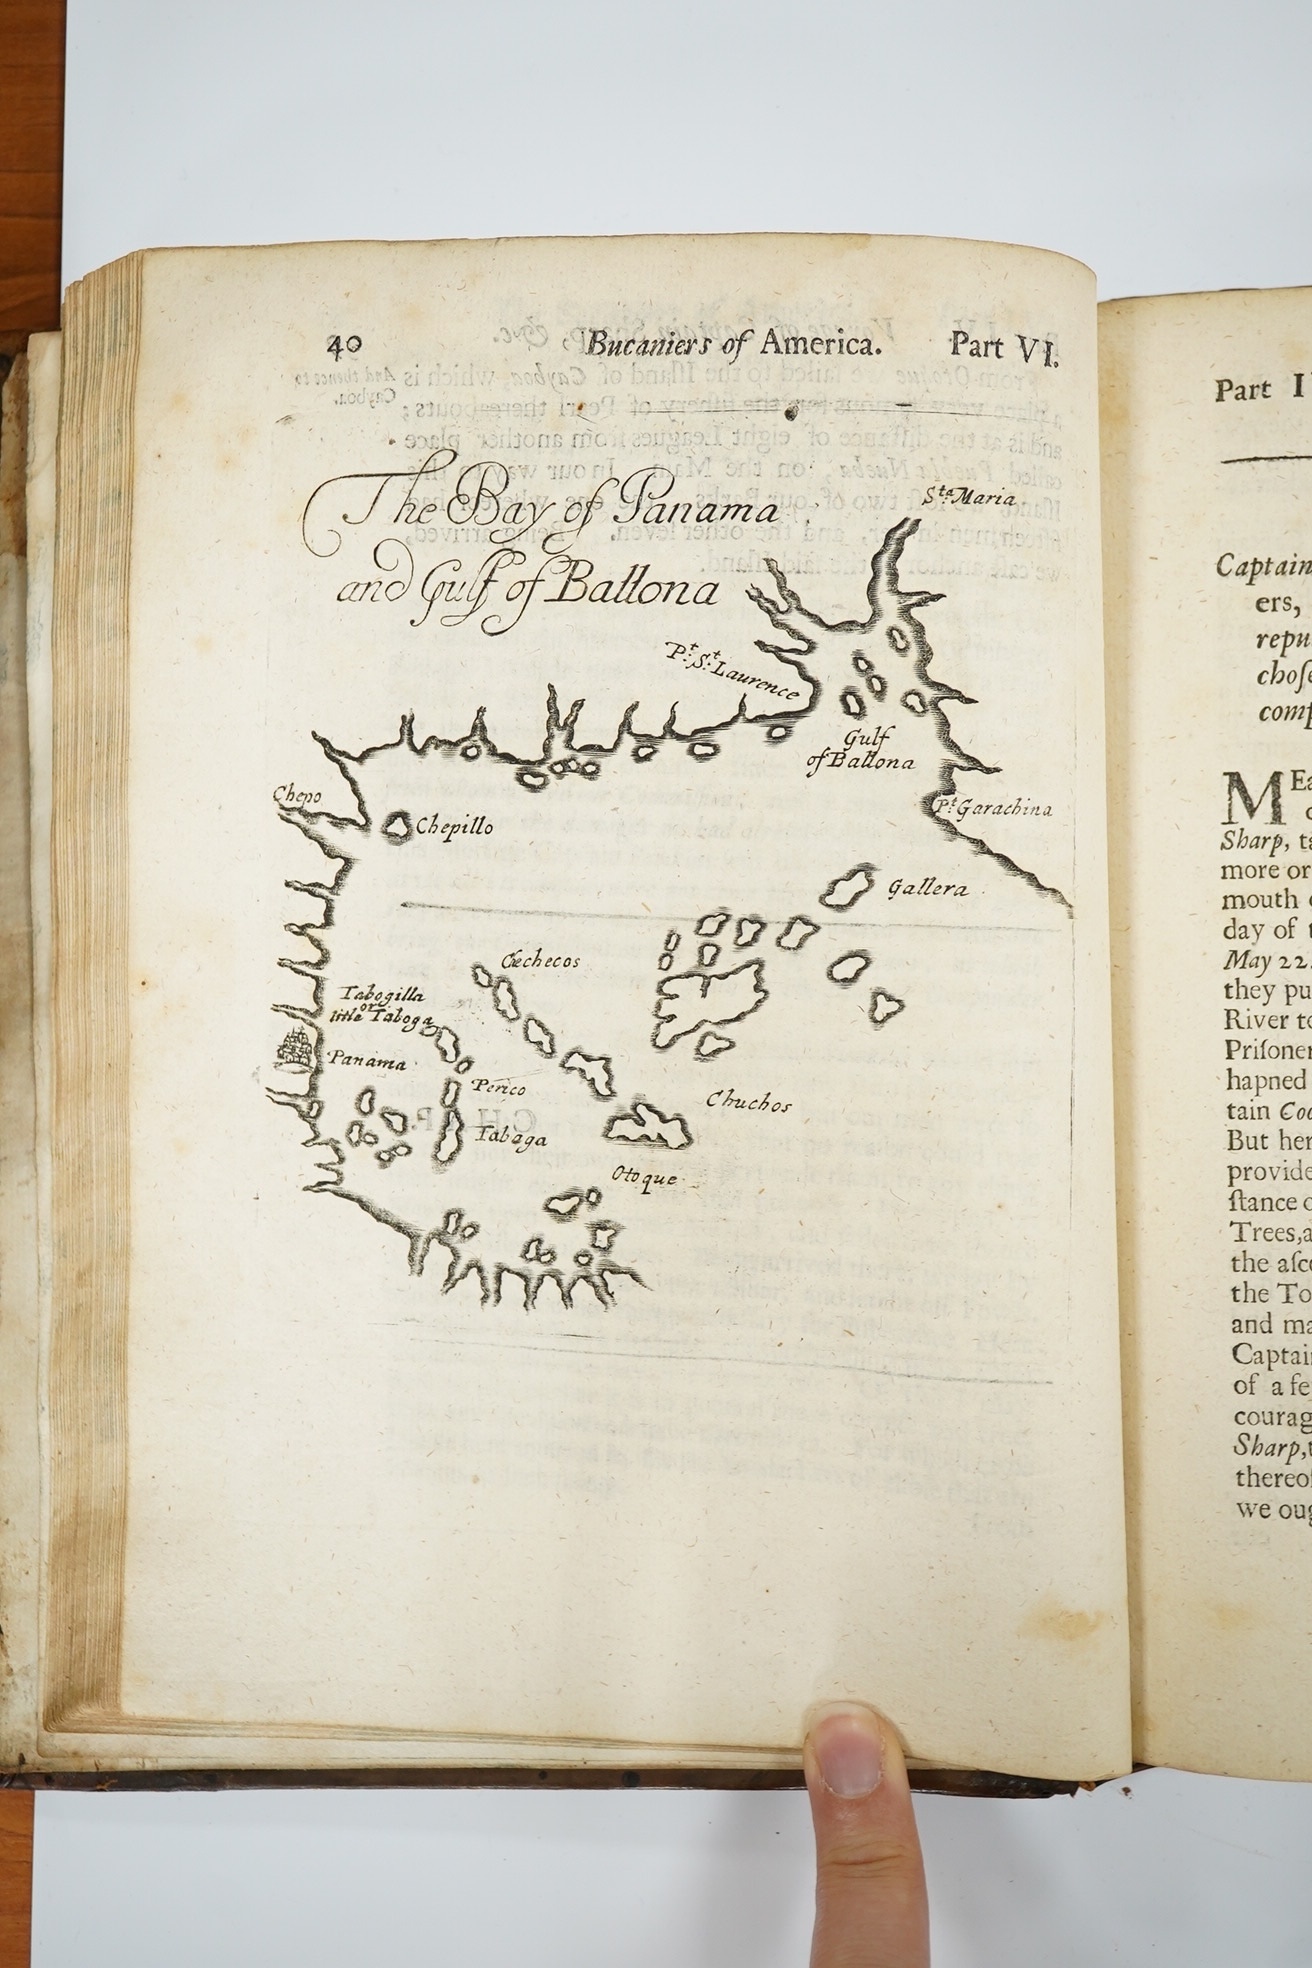 40 Bucaniers of America. Part VI.
The Bay of Panama
and Gulf of Ballona
Sta Maria
Pt. St. Laurence
Gulf
of Ballona
Chepo
Chepillo
Pt Garachina
Gallera
Chechecos
Tabogilla
or
little Taboga
Panama
Perico
Tabaga
Chuchos
Otoque
Part I
Captain
ers,
repu
choſe
comp
MEa
Sharp, ta
more or
mouth o
day of t
May 22.
they pu
River to
Priſoner
hapned
tain Coo
But her
provide
ſtance o
Trees, a
the aſce
the To
and ma
Captai
of a fe
courag
Sharp, t
thereof
we oug